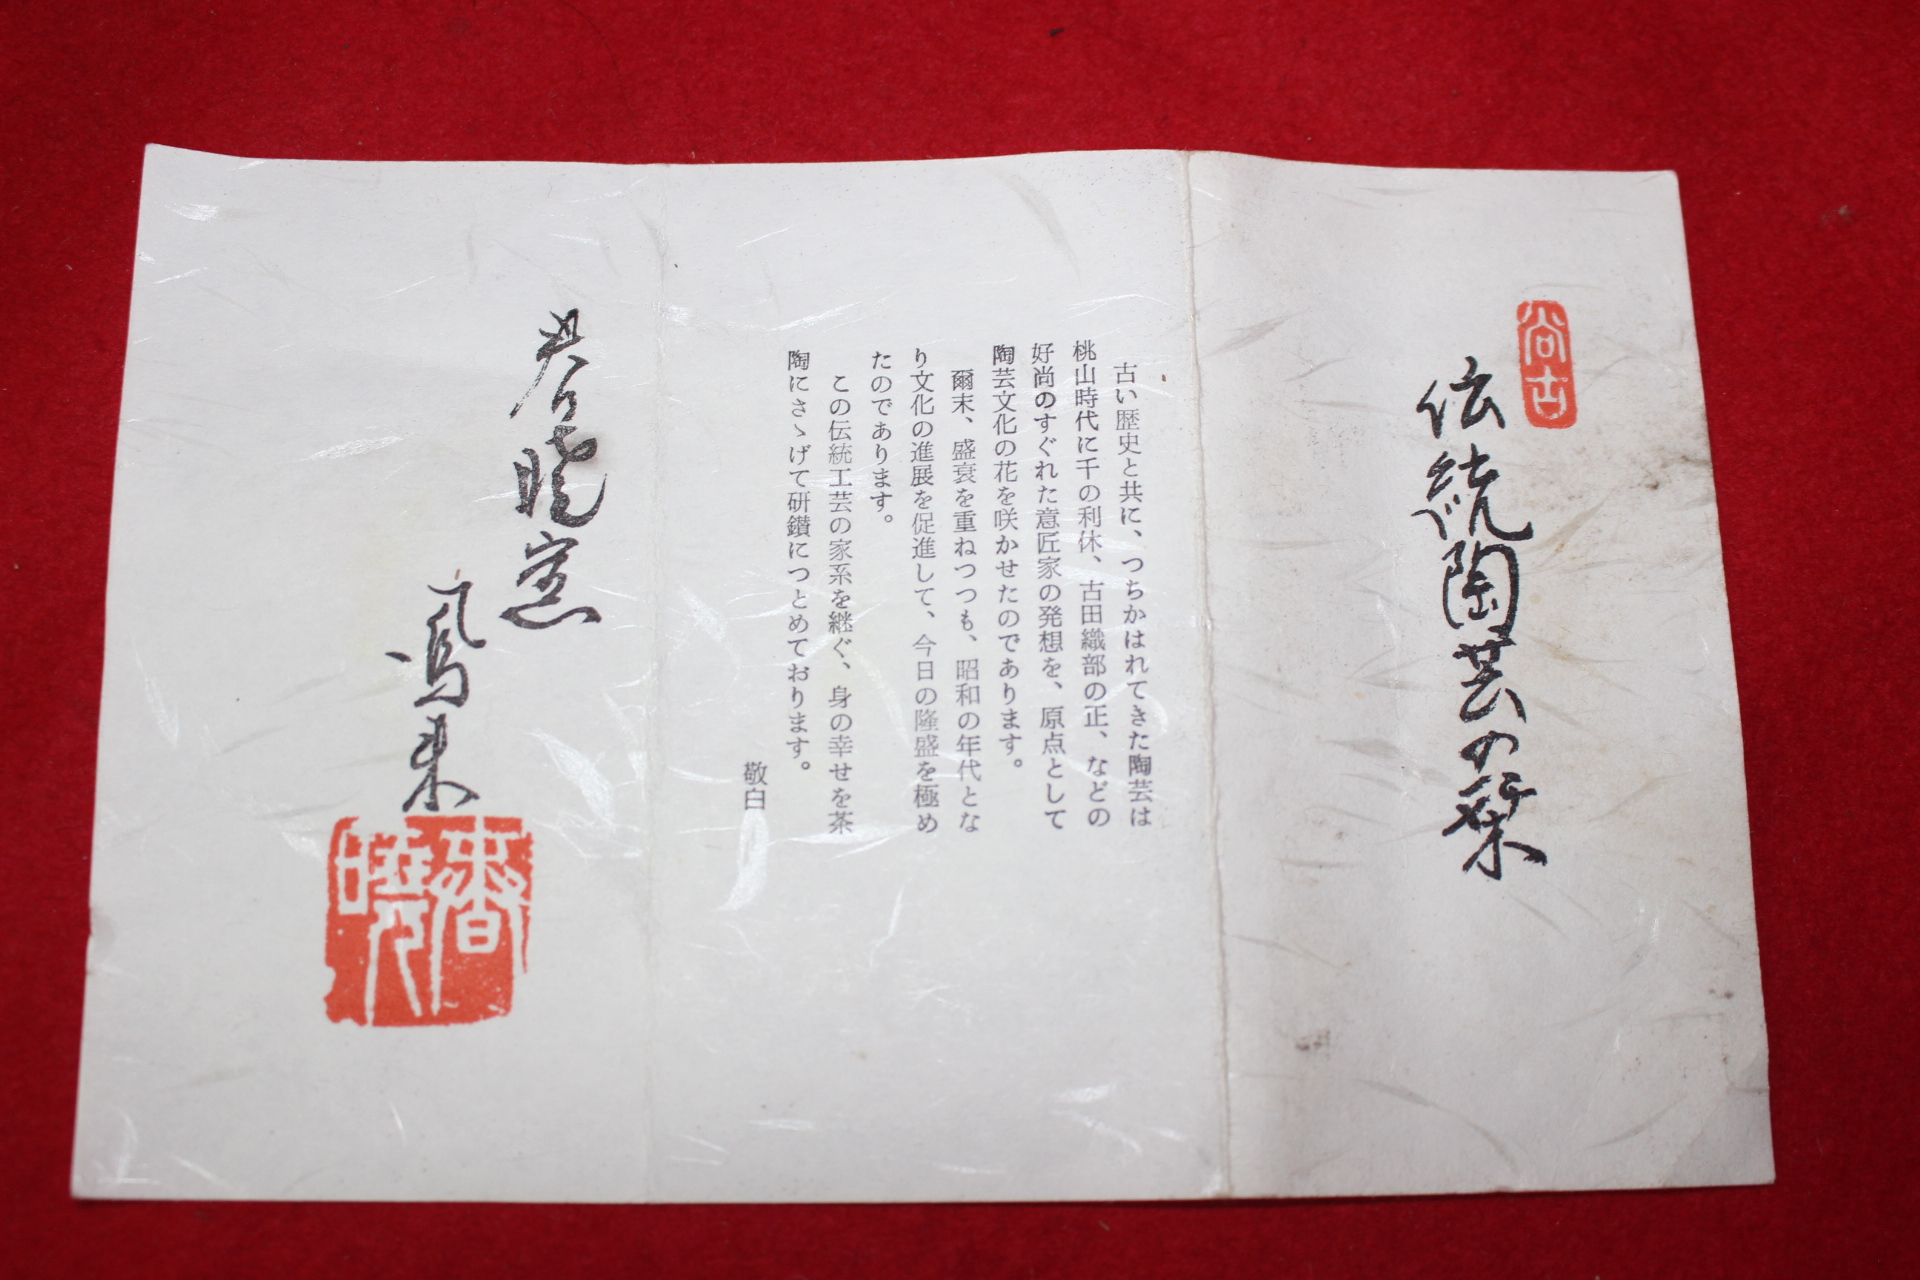 尚古
伝統陶芸の栞
古い歴史と共に、つちかはれてきた陶芸は
桃山時代に千の利休、古田織部の正、などの
好尚のすぐれた意匠家の発想を、原点として
陶芸文化の花を咲かせたのであります。
爾末、盛衰を重ねつつも、昭和の年代とな
り文化の進展を促進して、今日の隆盛を極め
たのであります。
この伝統工芸の家系を継ぐ、身の幸せを茶
陶にさゝげて研鑽につとめております。
敬白
春暁窯
鳳来